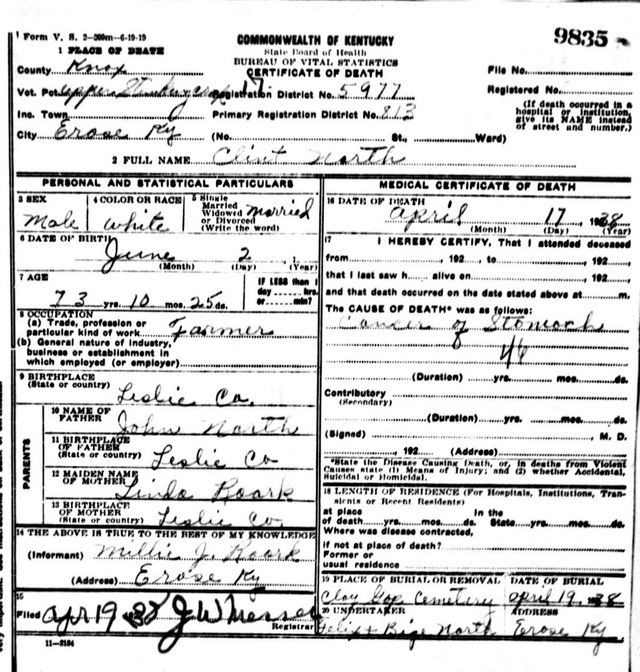 Form V. S. 2-300m-6-19-19
COMMONWEALTH OF KENTUCKY
State Board of Health
BUREAU OF VITAL STATISTICS
CERTIFICATE OF DEATH
9835
1 PLACE OF DEATH
County Knox
File No.
Vot. Pct. Upper Registration District No. 5977
Registered No.
Inc. Town Primary Registration District No. 813
(If death occurred in a hospital or institution, give its NAME instead of street and number.)
City Erose Ky (No. St., Ward)
2 FULL NAME Clint North
PERSONAL AND STATISTICAL PARTICULARS
3 SEX Male
4 COLOR OR RACE White
5 Single Married Widowed or Divorced (Write the word) Married
6 DATE OF BIRTH June 2
(Month) (Day) (Year)
7 AGE
73 yrs. 10 mos. 25 ds.
IF LESS than 1 day hrs. or min?
8 OCCUPATION
(a) Trade, profession or particular kind of work Farmer
(b) General nature of industry, business or establishment in which employed (or employer)
9 BIRTHPLACE
(State or country) Leslie Co.
PARENTS
10 NAME OF FATHER John North
11 BIRTHPLACE OF FATHER
(State or country) Leslie Co
12 MAIDEN NAME OF MOTHER Linda Roark
13 BIRTHPLACE OF MOTHER
(State or country) Leslie Co.
14 THE ABOVE IS TRUE TO THE BEST OF MY KNOWLEDGE
(Informant) Millie J. Roark
(Address) Erose Ky
15
Filed Apr 19 38 J W Messer
Registrar
11-3184
MEDICAL CERTIFICATE OF DEATH
16 DATE OF DEATH
April 17 1938
(Month) (Day) (Year)
17 I HEREBY CERTIFY, That I attended deceased
from , 192 , to , 192 ,
that I last saw h alive on , 192 ,
and that death occurred on the date stated above at m.
The CAUSE OF DEATH* was as follows:
Cancer of Stomach
46
(Duration) yrs. mos. ds.
Contributory
(Secondary)
(Duration) yrs. mos. ds.
(Signed) , M. D.
, 192 (Address)
*State the Disease Causing Death, or, in deaths from Violent Causes state (1) Means of Injury; and (2) whether Accidental, Suicidal or Homicidal.
18 LENGTH OF RESIDENCE (For Hospitals, Institutions, Transients or Recent Residents)
at place of death yrs. mos. ds. In the State yrs. mos. ds.
Where was disease contracted,
if not at place of death?
Former or
usual residence
19 PLACE OF BURIAL OR REMOVAL DATE OF BURIAL
Clay Gap Cemetery april 19, 38
20 UNDERTAKER ADDRESS
North Erose Ky